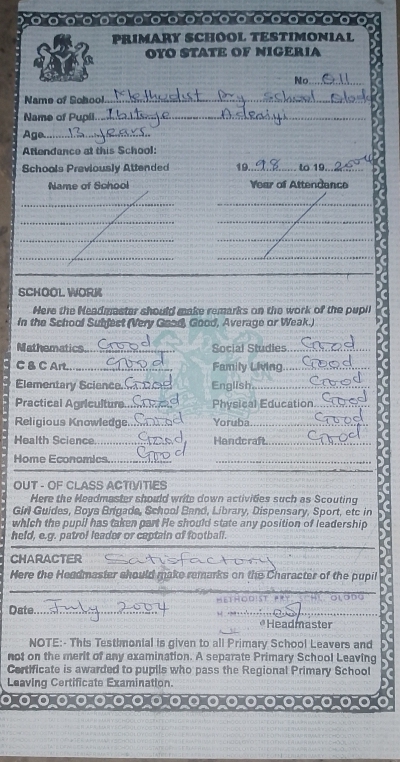 PRIMARY SCHOOL TESTIMONIAL
OYO STATE OF NIGERIA
No. 011
Name of School Methodist Pry School Olodo
Name of Pupil Ibitoye Adeniyi
Age 13 years
Attendance at this School:
Schools Previously Attended 1998 to 192004
Name of School Year of Attendance
SCHOOL WORK
Here the Headmaster should make remarks on the work of the pupil
in the School Subject (Very Good, Good, Average or Weak.)
Mathematics Good Social Studies Good
C & C Art Good Family Living Good
Elementary Science Good English Good
Practical Agriculture Good Physical Education Good
Religious Knowledge Good Yoruba Good
Health Science Good Handcraft Good
Home Economics Good
OUT - OF CLASS ACTIVITIES
Here the Headmaster should write down activities such as Scouting
Girl Guides, Boys Brigade, School Band, Library, Dispensary, Sport, etc in
which the pupil has taken part He should state any position of leadership
held, e.g. patrol leader or captain of football.
CHARACTER Satisfactory
Here the Headmaster should make remarks on the Character of the pupil
METHODIST PRY SCHL OLODO
Date July 2004
Headmaster
NOTE:- This Testimonial is given to all Primary School Leavers and
not on the merit of any examination. A separate Primary School Leaving
Certificate is awarded to pupils who pass the Regional Primary School
Leaving Certificate Examination.